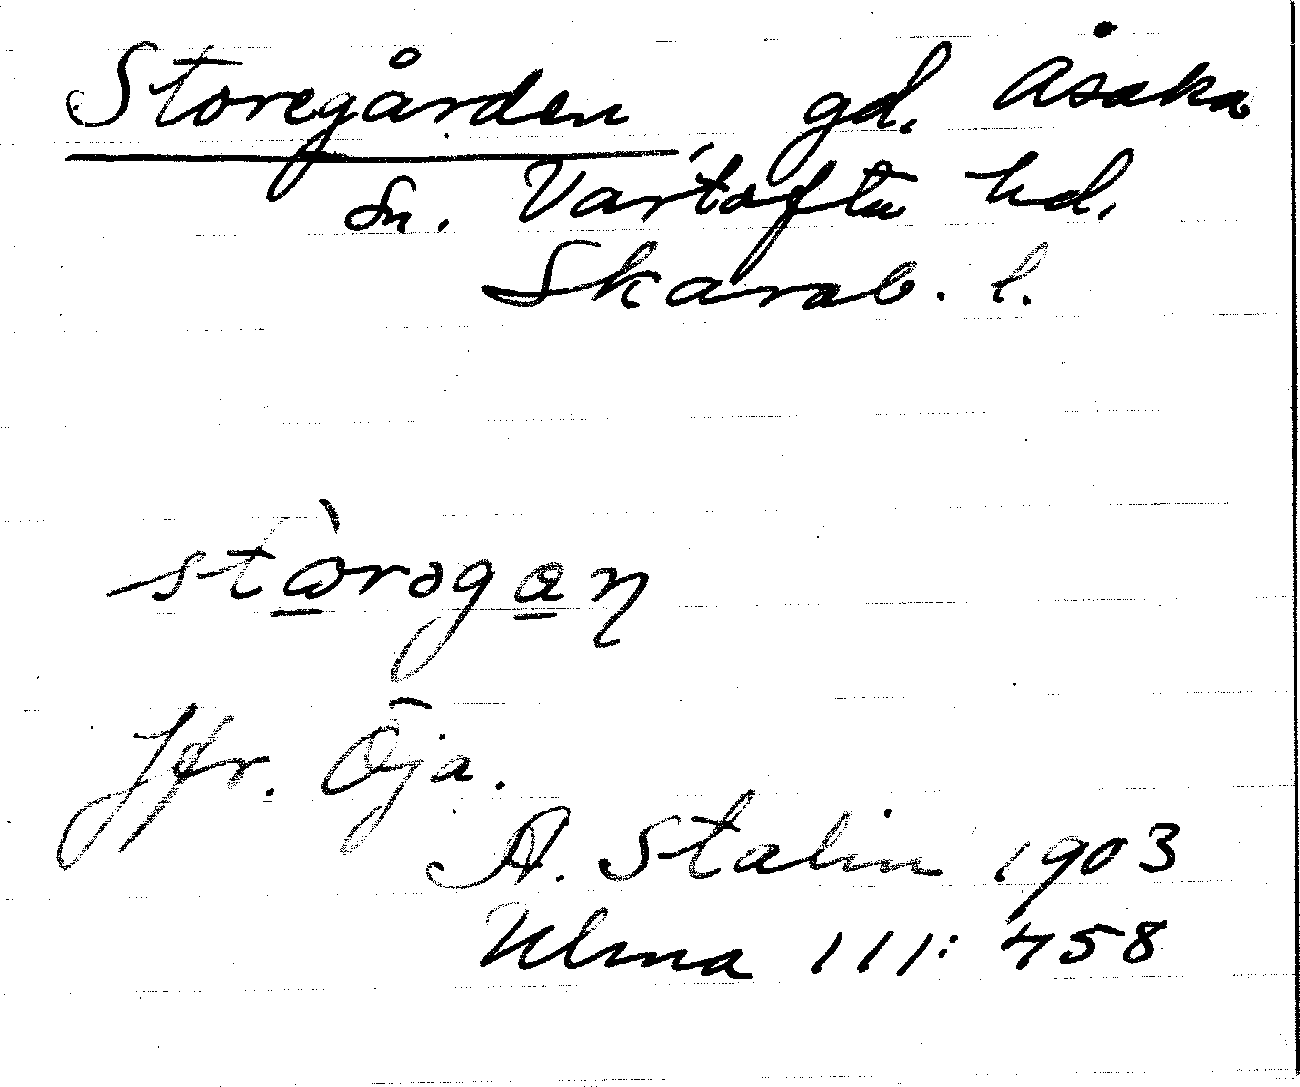 Storegården, gd. Åsaka
sn. Vartofta hd.
Skarab. l.
stɷ̀rəgaɳ
Jfr. Öja.
A. Stalin 1903
Ulma 111: 458